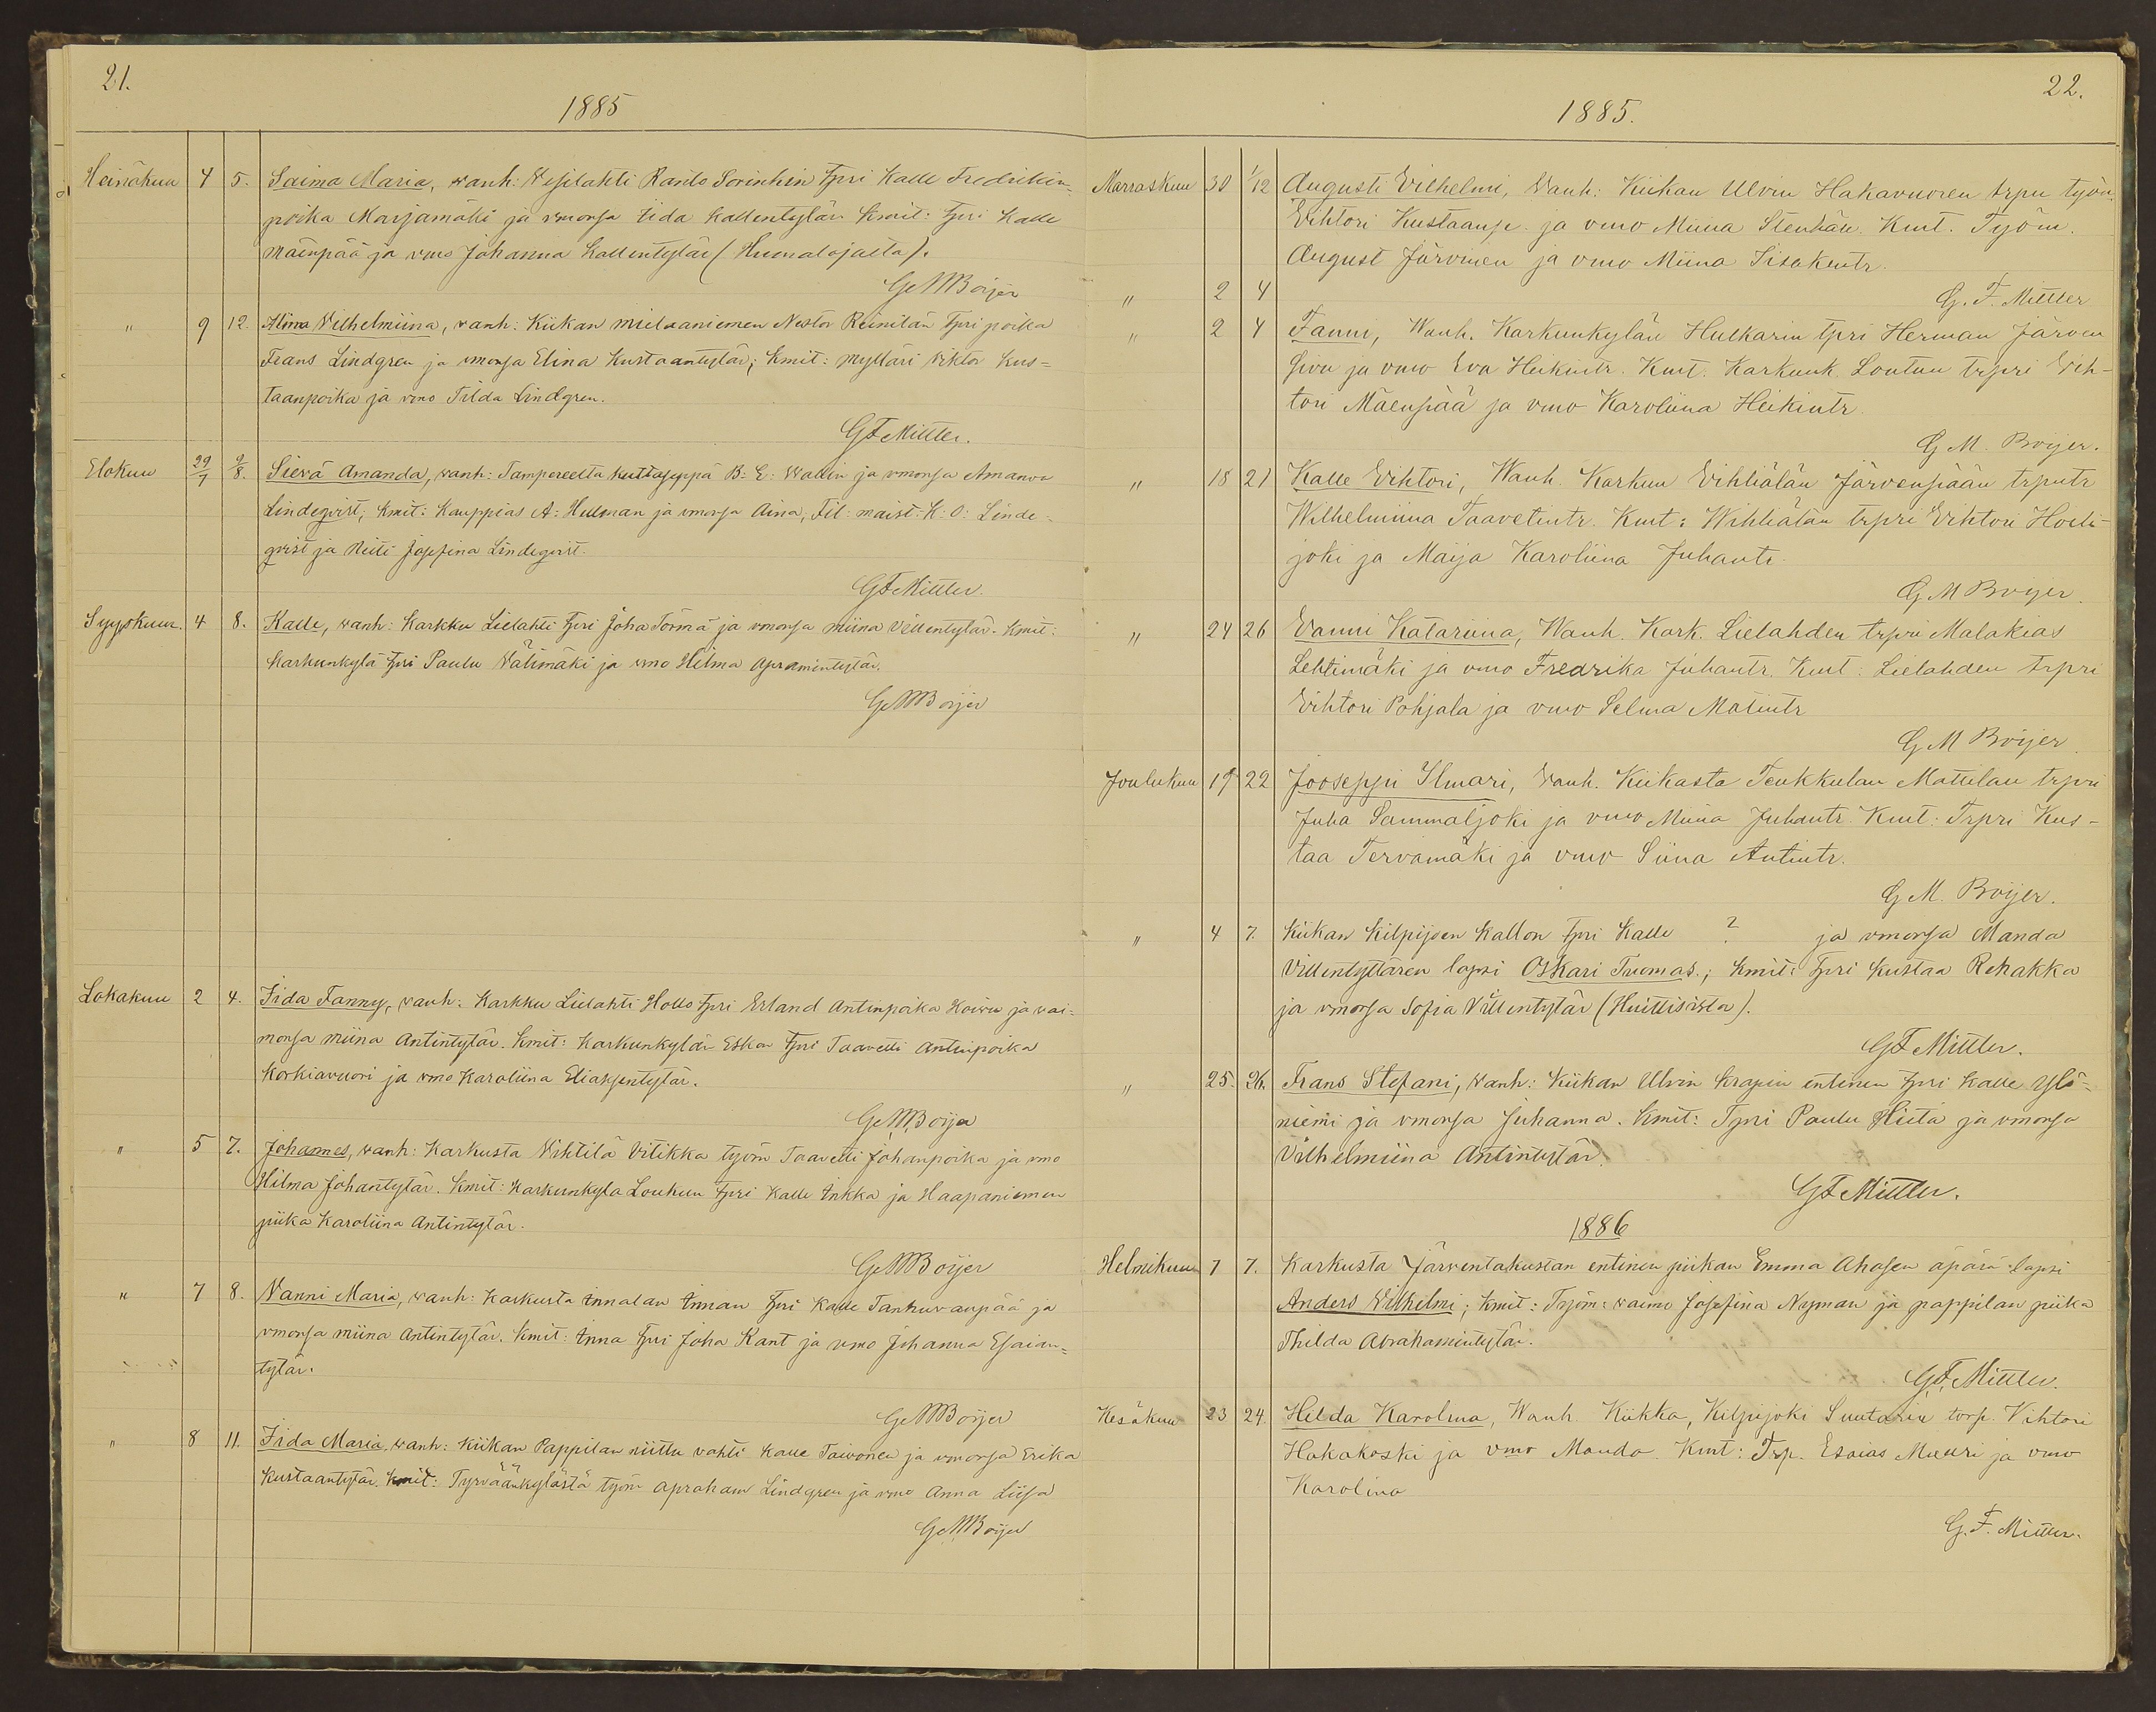 21.
1885
Heinäkuu 4 5. Saima Maria, vanh: Vesilahti Ranto Sorinkin Tpri Kalle Fredrikin-
poika Marjamäki ja vmonsa Iida Kallentytär Kmit: Tpri Kalle
Mäenpää ja vmo Johanna Kallentytär (Humalojalta).
G M Boijer
" 9 12. Alma Vilhelmiina, vanh: Kiikan Mielaaniemen Nestor Reinilän Tpri poika
Frans Lindgren ja vmonsa Elina Kustaantytär; Kmit: Mylläri Viktor Kus=
taanpoika ja vmo Tilda Lindgren.
G F Mittler.
Elokuu 29/7 2/8. Sievä Amanda, vanh: Tampereelta Kultaseppä B: E: Wallin ja vmonsa Amanda
Lindeqvist; Kmit: Kauppias A: Hellman ja vmonsa Aina, Fil: maist: K: O: Linde-
qvist ja Neiti Josefina Lindeqvist.
G F Mittler.
Syyskuu. 4 8. Kalle, vanh: Karkku Lielahti Tpri Joha Törmä ja vmonsa Miina Villentytär. Kmit:
Karkunkylä Tpri Paulu Välimäki ja vmo Hilma Apramintytär.
G M Boijer
Lokakuu 2 4. Iida Fanny, vanh: Karkku Lielahti Hollo Tpri Erland Antinpoika Koivu ja vai=
monsa Miina Antintytär. Kmit: Karkunkylän Eskon Tpri Taavetti Antinpoika
Korkiavuori ja vmo Karoliina Eliaksentytär.
G M Boijer
" 5 7. Johannes, vanh: Karkusta Vihtilä Vitikka työm Taavetti Johanpoika ja vmo
Hilma Johantytär. Kmit: Karkunkylä Louhun Tpri Kalle Inkka ja Haapaniemen
piika Karoliina Antintytär.
G M Boijer
" 7 8. Vanni Maria, vanh: Karkusta Innalan Innan Tpri Kalle Tanhuvanpää ja
vmonsa Miina Antintytär. Kmit: Inna Tpri Joha Kant ja vmo Johanna Esaian=
tytär.
G M Boijer
" 8 11. Iida Maria, vanh: Kiikan Pappilan niittu vahti Kalle Taivonen ja vmonsa Erika
Kustaantytär. Kmit: Tyrväänkylästä työm Apraham Lindgren ja vmo Anna Liisa
G M Boijer
22.
1885.
Marraskuu 30 1/12 Augusti Vilhelmi, Vanh: Kiikan Ulvin Hakavuoren trpn työm.
Vihtori Kustaanp. ja vmo Miina Stenhän. Kmt. Työm.
August Järvinen ja vmo Miina Iisakintr.
" 2 4 G. F. Mittler
" 2 4 Fanni, Wanh. Karkunkylän Hulkarin tpri Herman Järven
sivu ja vmo Eva Heikintr. Kmt. Karkunk. Loutun trpri Vih-
tori Mäenpää ja vmo Karoliina Heikintr.
G M. Boijer.
" 18 21 Kalle Vihtori, Wanh. Karkun Vihliälän Järvenpään trpntr
Wilhelmiina Taavetintr. Kmt: Wihliälän trpri Vihtori Hosli-
joki ja Maija Karoliina Juhantr.
G M Boijer.
" 24 26 Vanni Katariina, Wanh. Kark. Lielahden trpri Malakias
Lehtimäki ja vmo Fredrika Juhantr. Kmt: Lielahden trpri
Vihtori Pohjala ja vmo Selma Matintr
G M Boijer.
Joulukuu 19 22 Jooseppi Ilmari, Vanh. Kiikasta Teukkulan Mattilan trpri
Juha Sammaljoki ja vmo Miina Juhantr. Kmt: Trpri Kus-
taa Tervamäki ja vmo Siina Antintr.
G M. Boijer.
" 4 7. Kiikan Kilpijoen Kallon Tpri Kalle ? ja vmonsa Manda
Villentyttären lapsi Oskari Tuomas.; Kmit: Tpri Kustaa Rehakka
ja vmonsa Sofia Villentytär (Huittisista).
G F Mittler.
" 25. 26. Frans Stefani, vanh: Kiikan Ulvin Krapin entinen Tpri Kalle Ylö-
niemi ja vmonsa Juhanna. Kmit: Tpri Paulu Hieta ja vmonsa
Vilhelmiina Antintytär.
G F Mittler.
1886
Helmikuu 7 7. Karkusta Järventakustan entinen piikan Emma Ahosen äpärä lapsi
Anders Vilhelmi; Kmit: Työm: vaimo Josefina Nyman ja pappilan piika
Thilda Abrahamintytär.
G. F. Mittler.
Kesäkuu 23 24. Hilda Karolina, Wanh. Kiikka, Kilpijoki Suutarin torp. Vihtori
Hakakoski ja vmo Manda. Kmt: Trp. Esaias Muuri ja vmo
Karolina
G. F. Mittler.